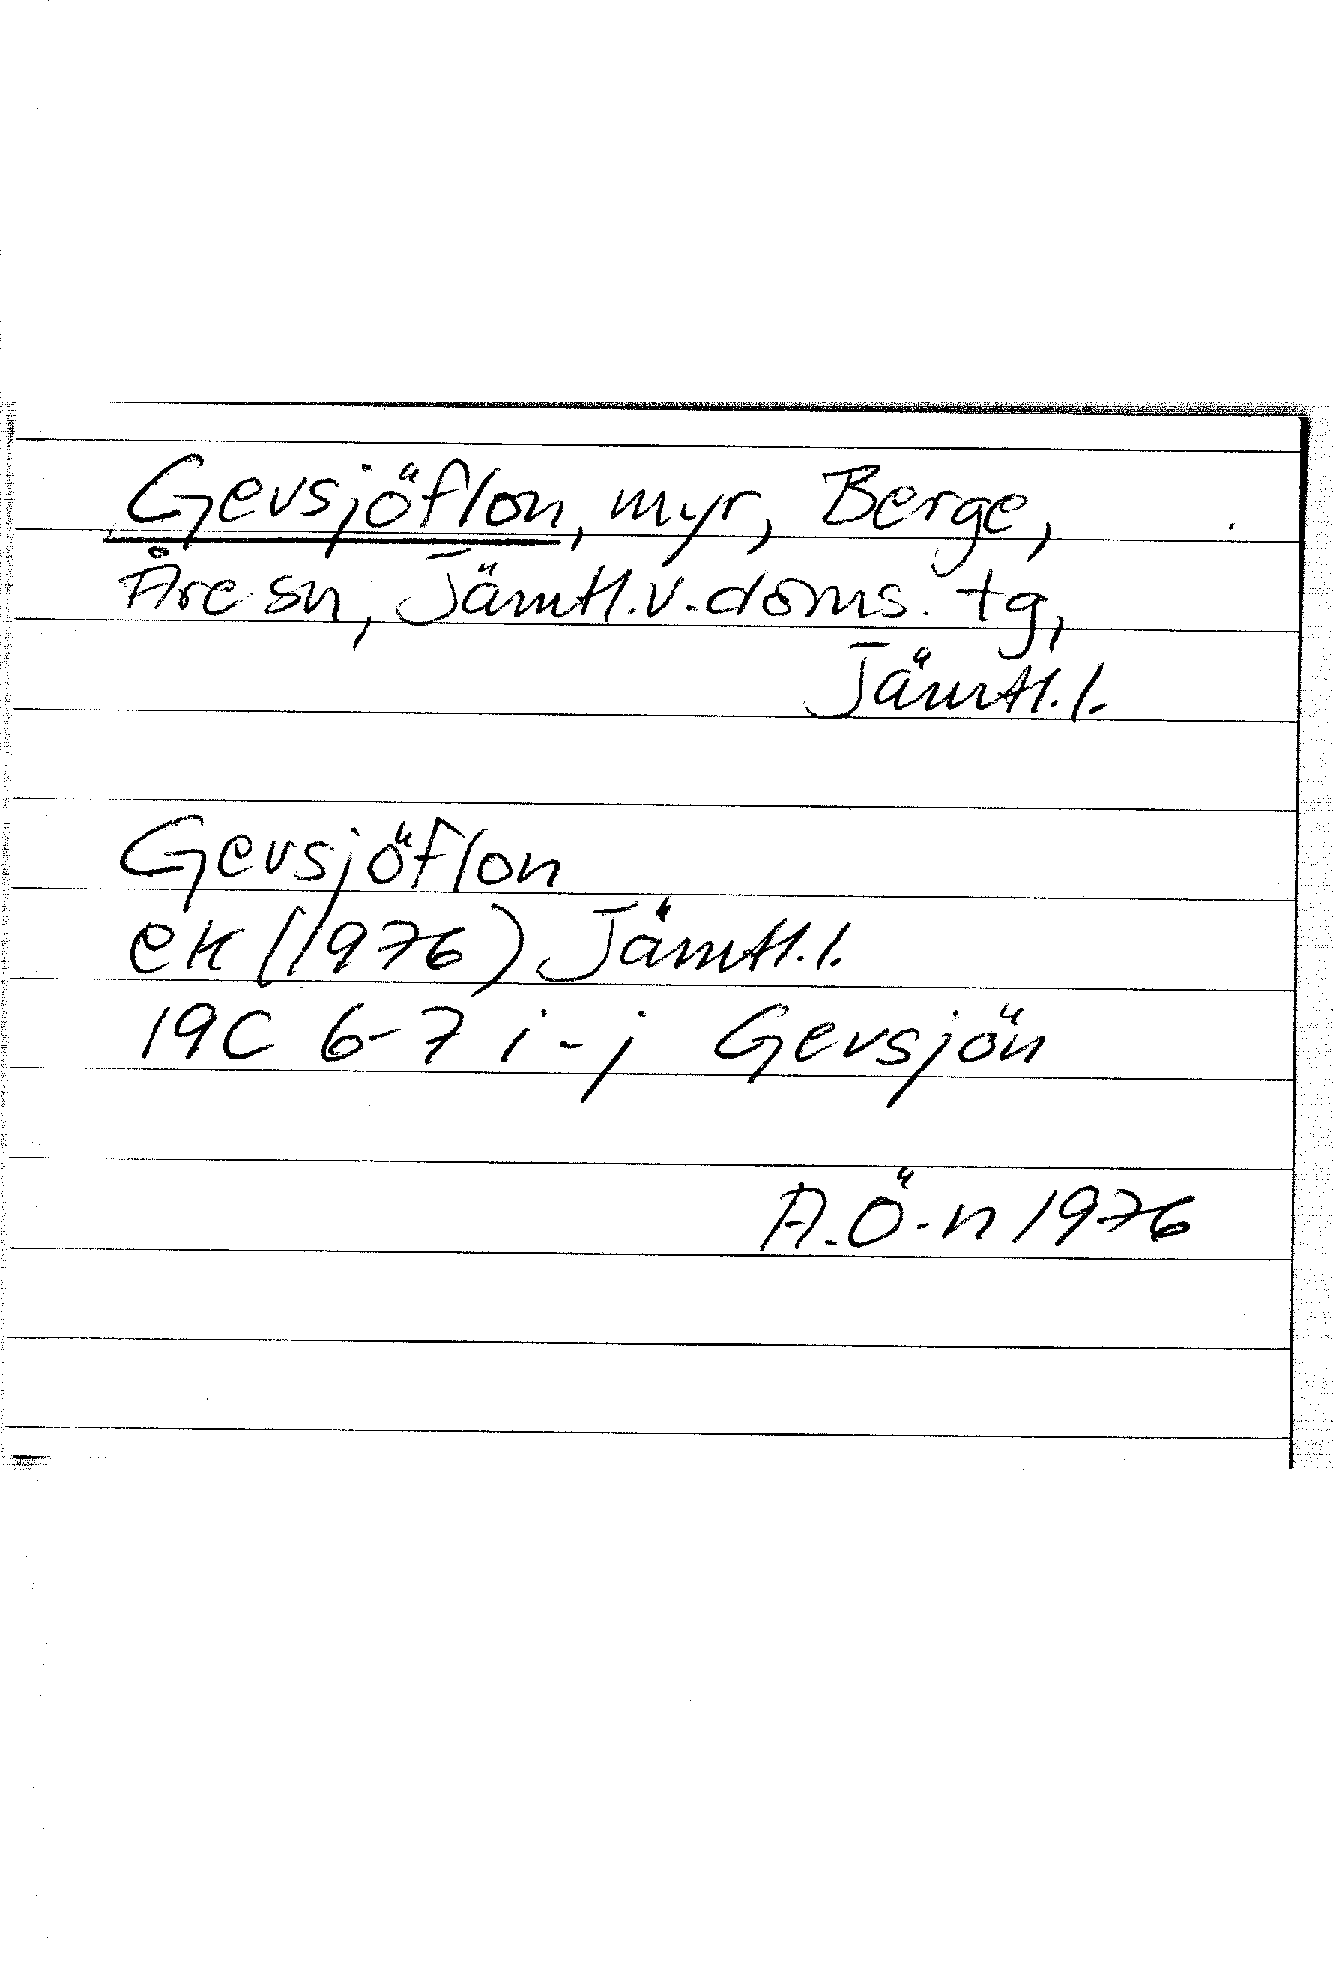 Gevsjöflon, myr, Berge,
Åre sn, Jämtl.v.doms. tg,
Jämtl.l.
Gevsjöflon
ek (1976) Jämtl.l.
19C 6-7 i-j Gevsjön
A.Ö-n 1976